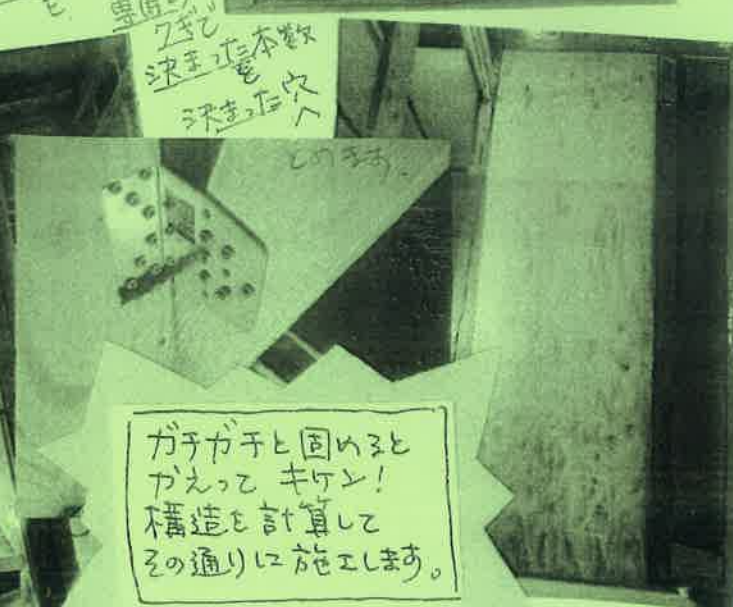 を
専用の
クギで
決まった本数
を
決まった穴
へ
とめます。
ガチガチと固めると
かえって キケン!
構造を計算して
その通りに施工します。